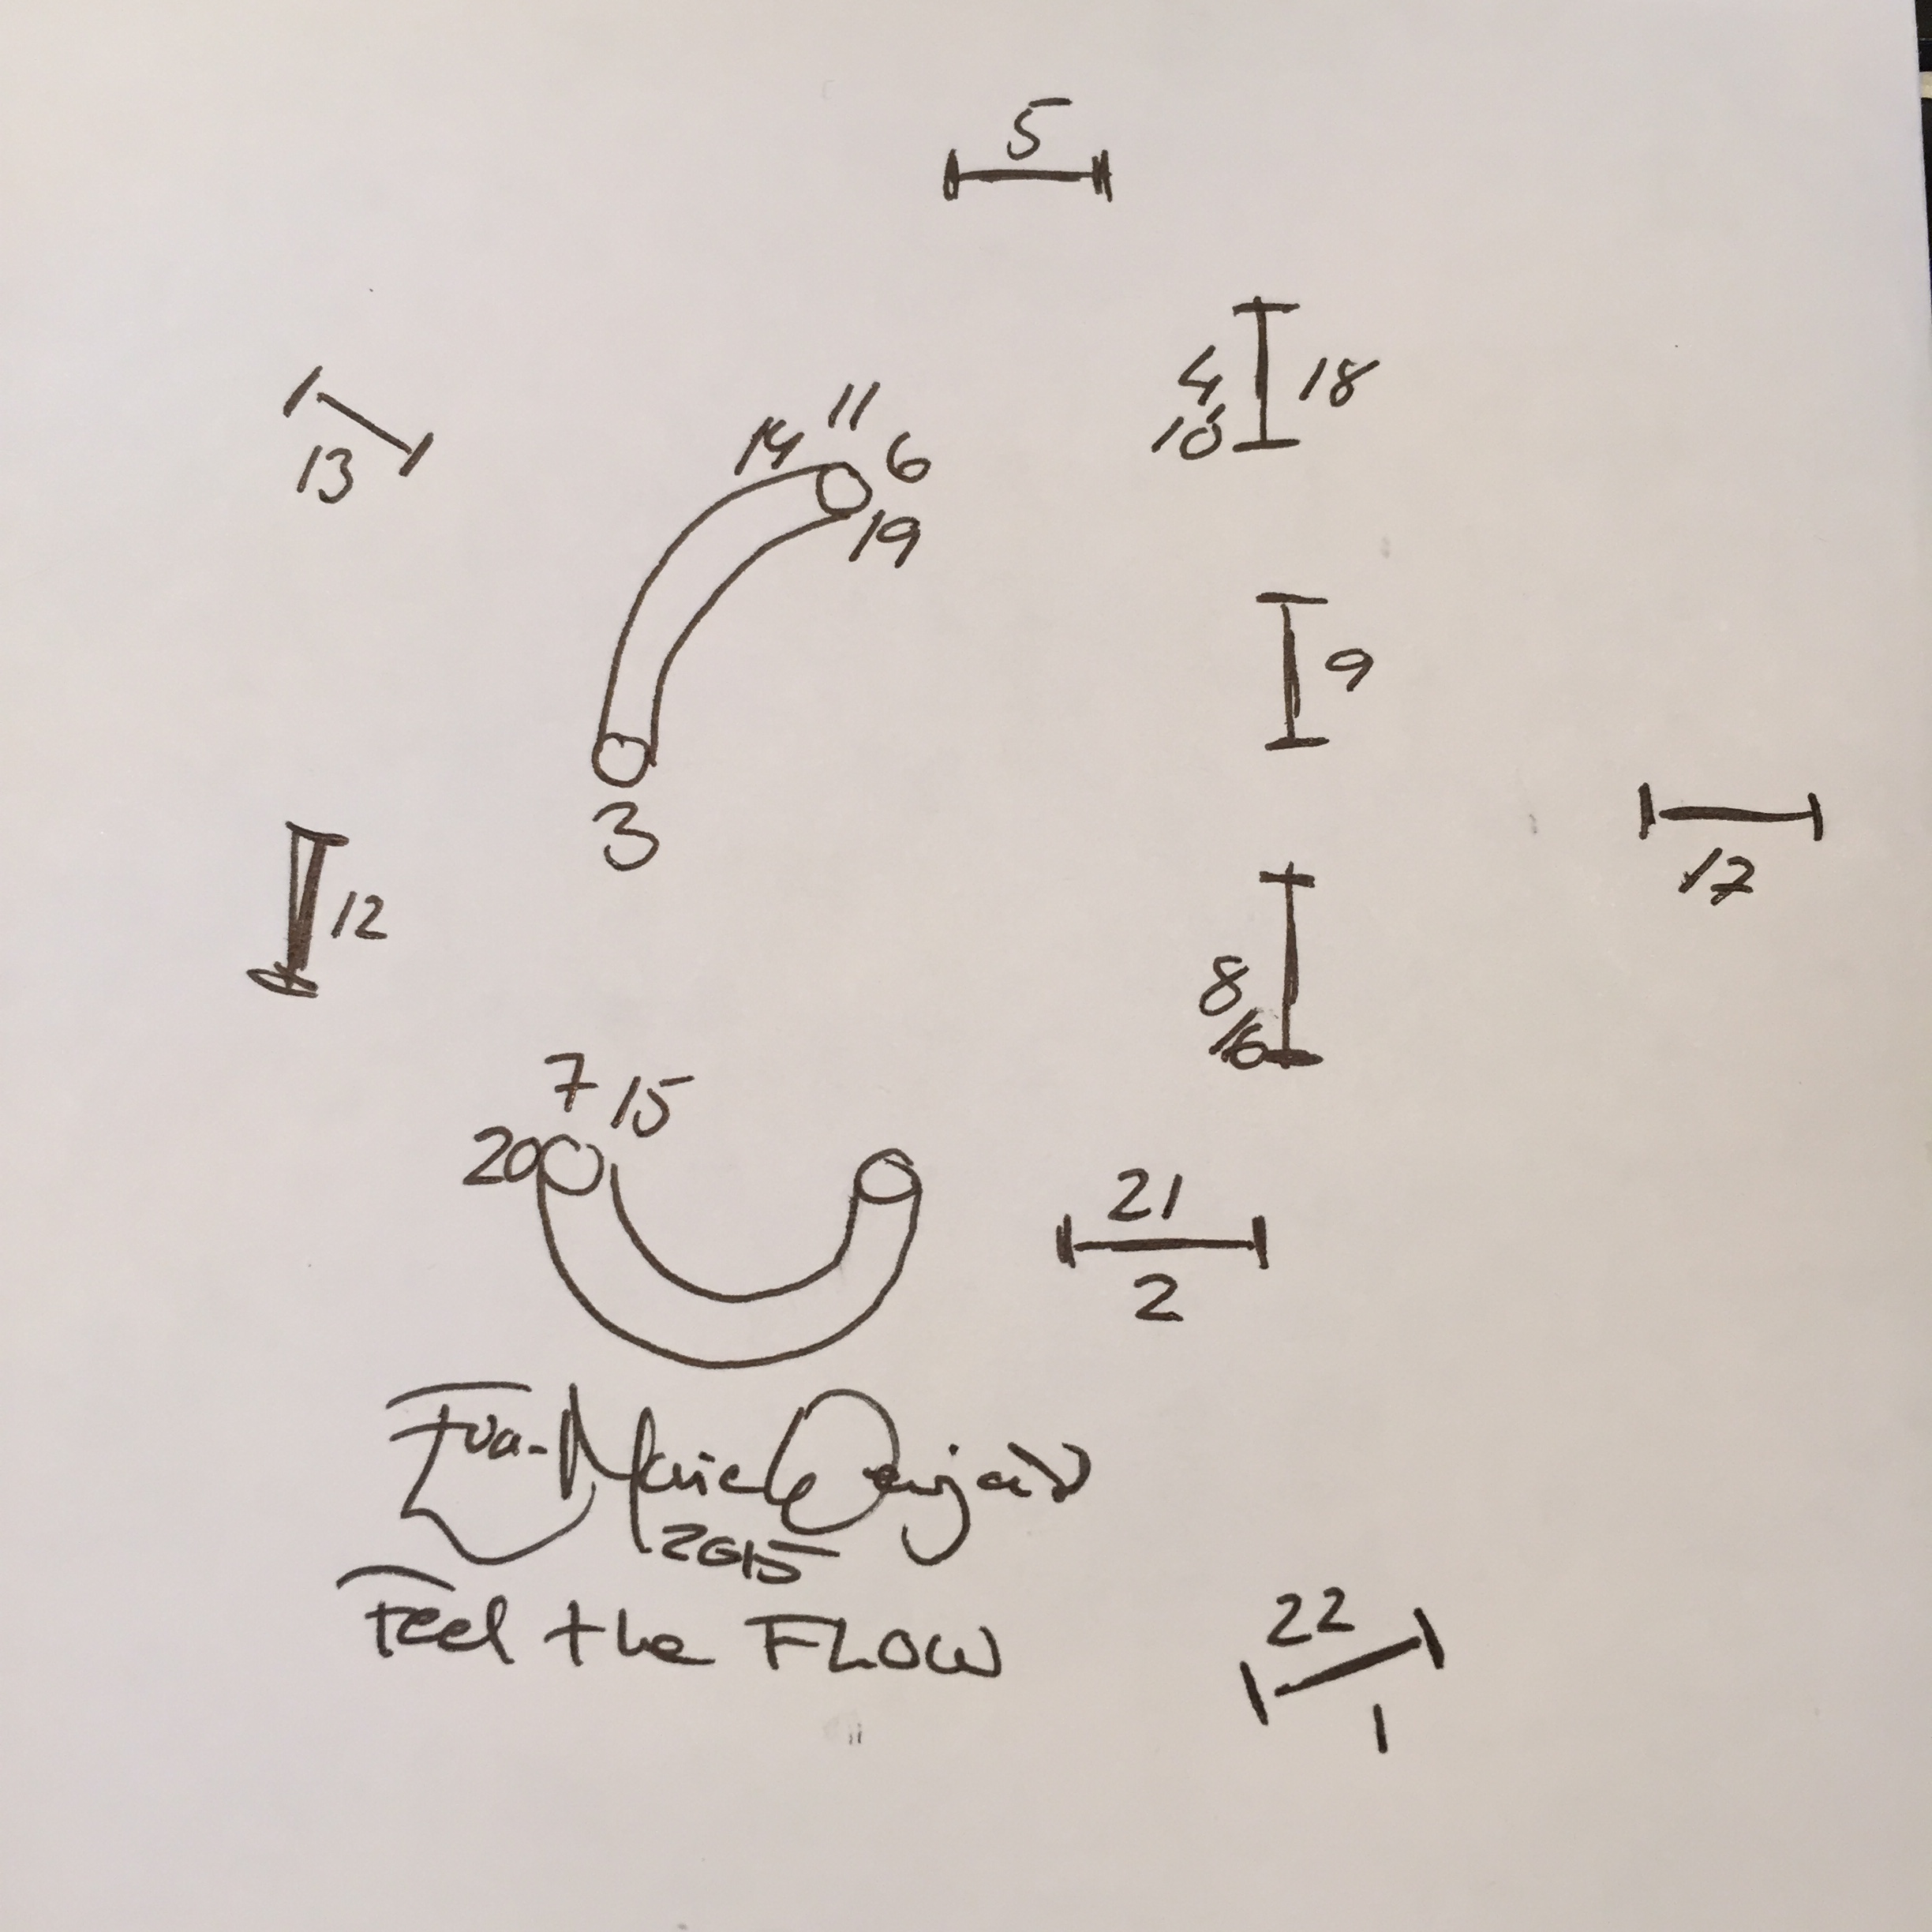 5
4 18
10
11
14 6
19
13
9
3
17
12
8
16
7 15
20
21
2
Eva-Marie
2015
Feel the FLOW
22
1